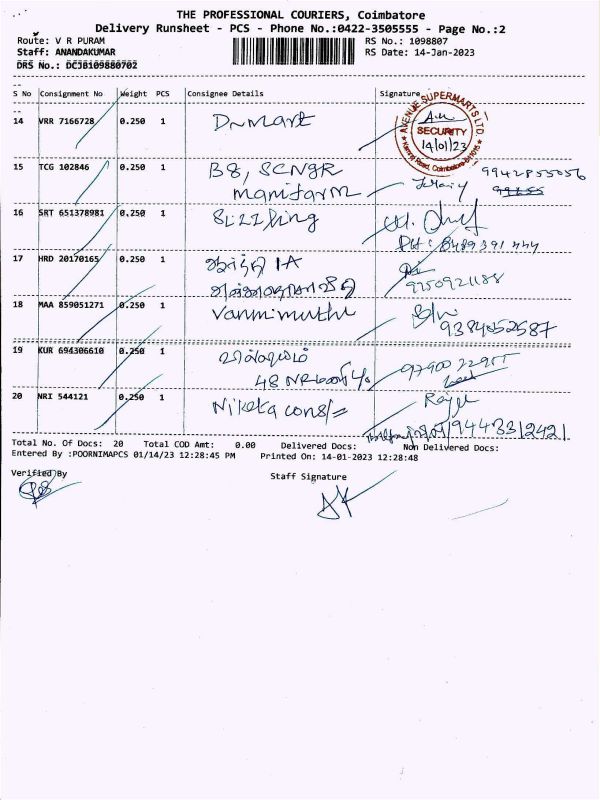 THE PROFESSIONAL COURIERS, Coimbatore
Delivery Runsheet - PCS - Phone No.:0422-3505555 - Page No.:2
Route: V R PURAM
RS No.: 1098807
Staff: ANANDAKUMAR
RS Date: 14-Jan-2023
DRS No.: DCJB109880702
S No Consignment No Weight PCS Consignee Details Signature
AVENUE SUPERMARTS LTD.
SECURITY
14/01/23
14 VRR 7166728 0.250 1 D-Mart
15 TCG 102846 0.250 1 B8, SCNGR 9942855056
Manifarm
16 SRT 651378981 0.250 1 Sizzling
PH: 8489391444
17 HRD 20170165 0.250 1 1A
9250921188
18 MAA 859051271 0.250 1 Vanmimuthu
9384052587
19 KUR 694306610 0.250 1
48
20 NRI 544121 0.250 1 Niketa cons/=
9443312421
Total No. Of Docs: 20 Total COD Amt: 0.00 Delivered Docs: Non Delivered Docs:
Entered By :POORNIMAPCS 01/14/23 12:28:45 PM Printed On: 14-01-2023 12:28:48
Verified By
Staff Signature